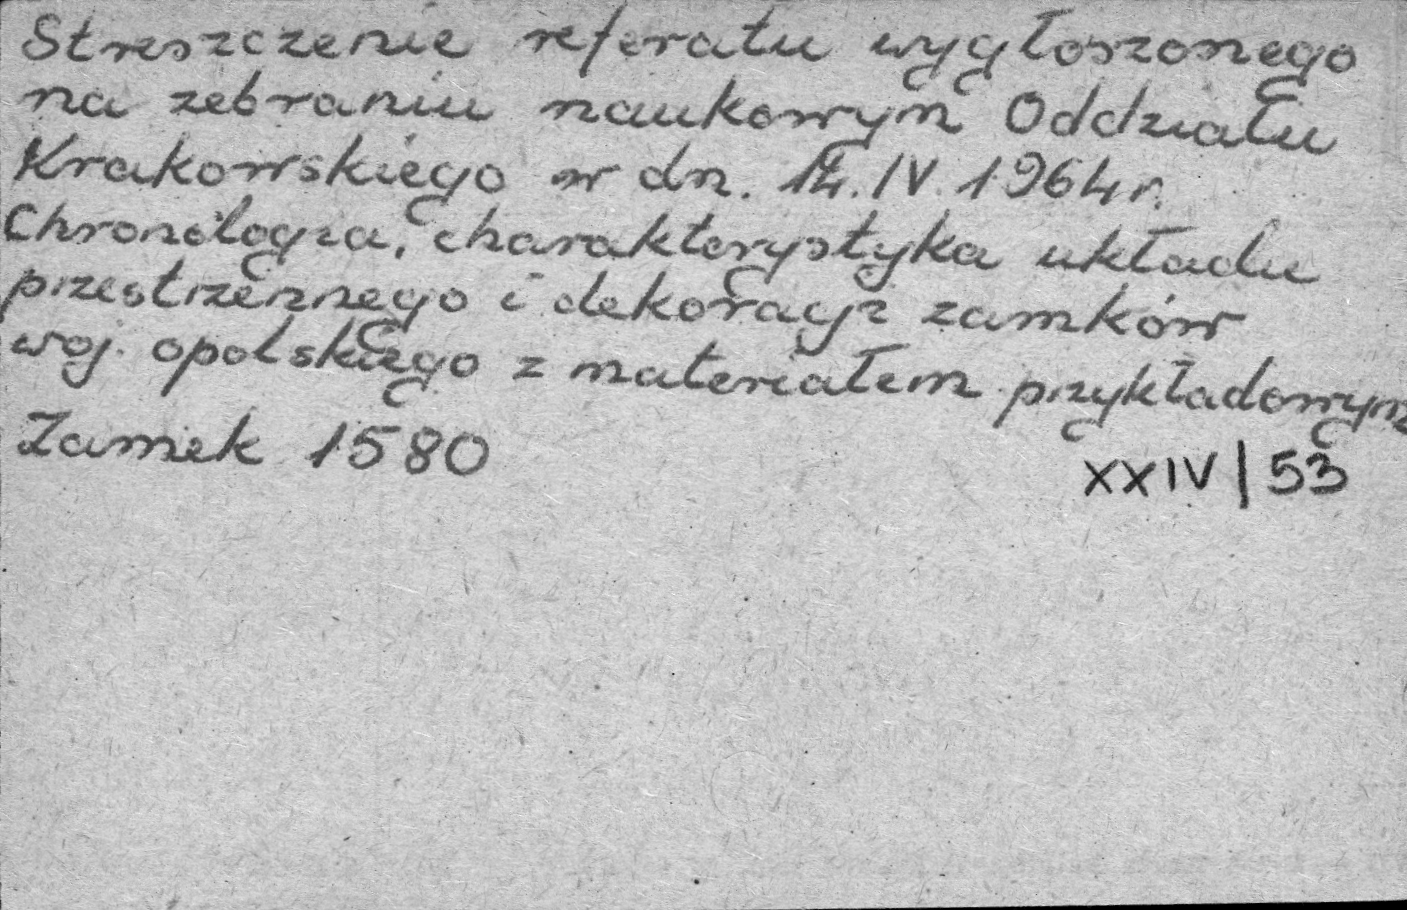 Streszczenie referatu wygłoszonego
na zebraniu naukowym Oddziału
Krakowskiego w dn. 14. IV. 1964 r.
Chronologia, charakterystyka układu
przestrzennego i dekoracji zamków
woj. opolskiego z materiałem przykładowym
Zamek 1580
XXIV/53